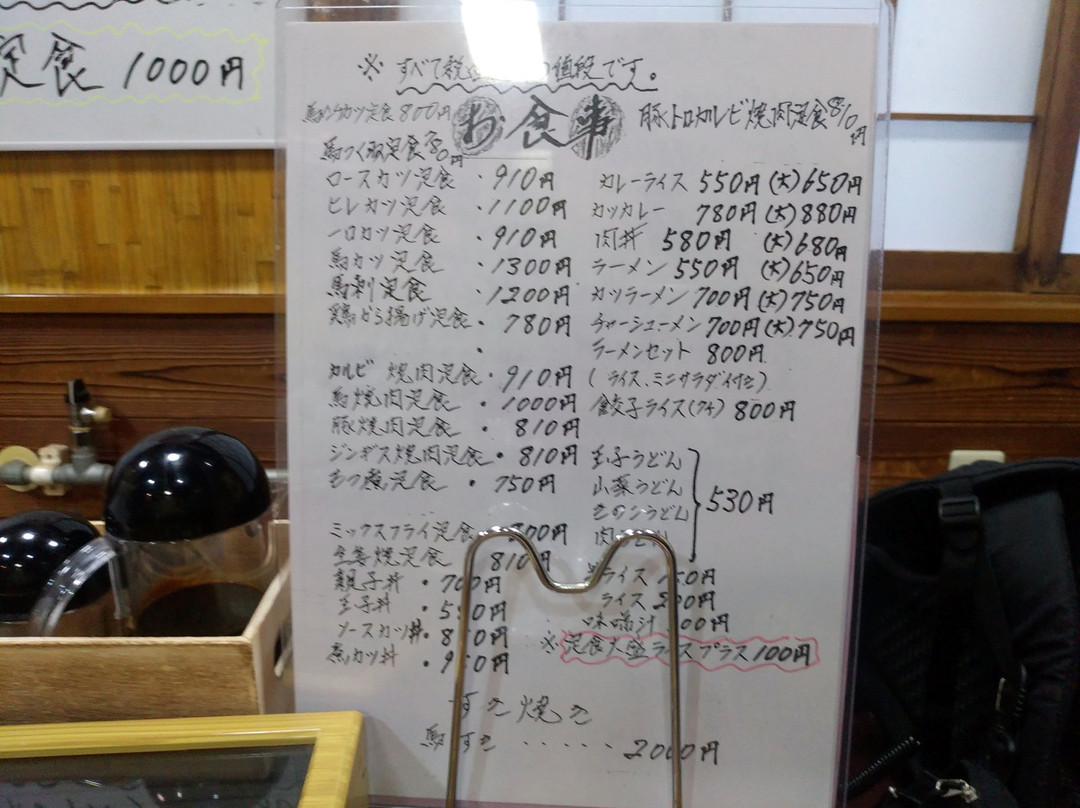 定食 1000円
※ すべて税 値段です。
お食事
馬メンチカツ定食 800円
馬つくね定食 810円
ロースカツ定食 ・910円
ヒレカツ定食 ・1100円
一口カツ定食 ・910円
馬カツ定食 ・1300円
馬刺定食 ・1200円
鶏から揚げ定食・ 780円
・
カルビ 焼肉定食・910円
馬焼肉定食 ・ 1000円
豚焼肉定食 ・ 810円
ジンギス焼肉定食・810円
もつ煮定食 ・ 750円
ミックスフライ定食 00円
生姜焼定食 810円
親子丼 ・700円
玉子丼 ・580円
ソースカツ丼・ 円
煮カツ丼 ・ 円
豚トロカルビ焼肉定食810円
カレーライス 550円(大)650円
カツカレー 780円(大)880円
肉丼 580円 (大)680円
ラーメン 550円 (大)650円
カツラーメン 700円(大)750円
チャーシューメン 700円(大)750円
ラーメンセット 800円
(ライス、ミニサラダ付き)
餃子ライス(ワケ) 800円
玉子うどん
山菜うどん
きのこうどん
肉うどん
530円
半ライス 150円
ライス 200円
味噌汁 100円
※定食大盛ライスプラス100円
すき焼き
馬すき ・・・・・・2000円